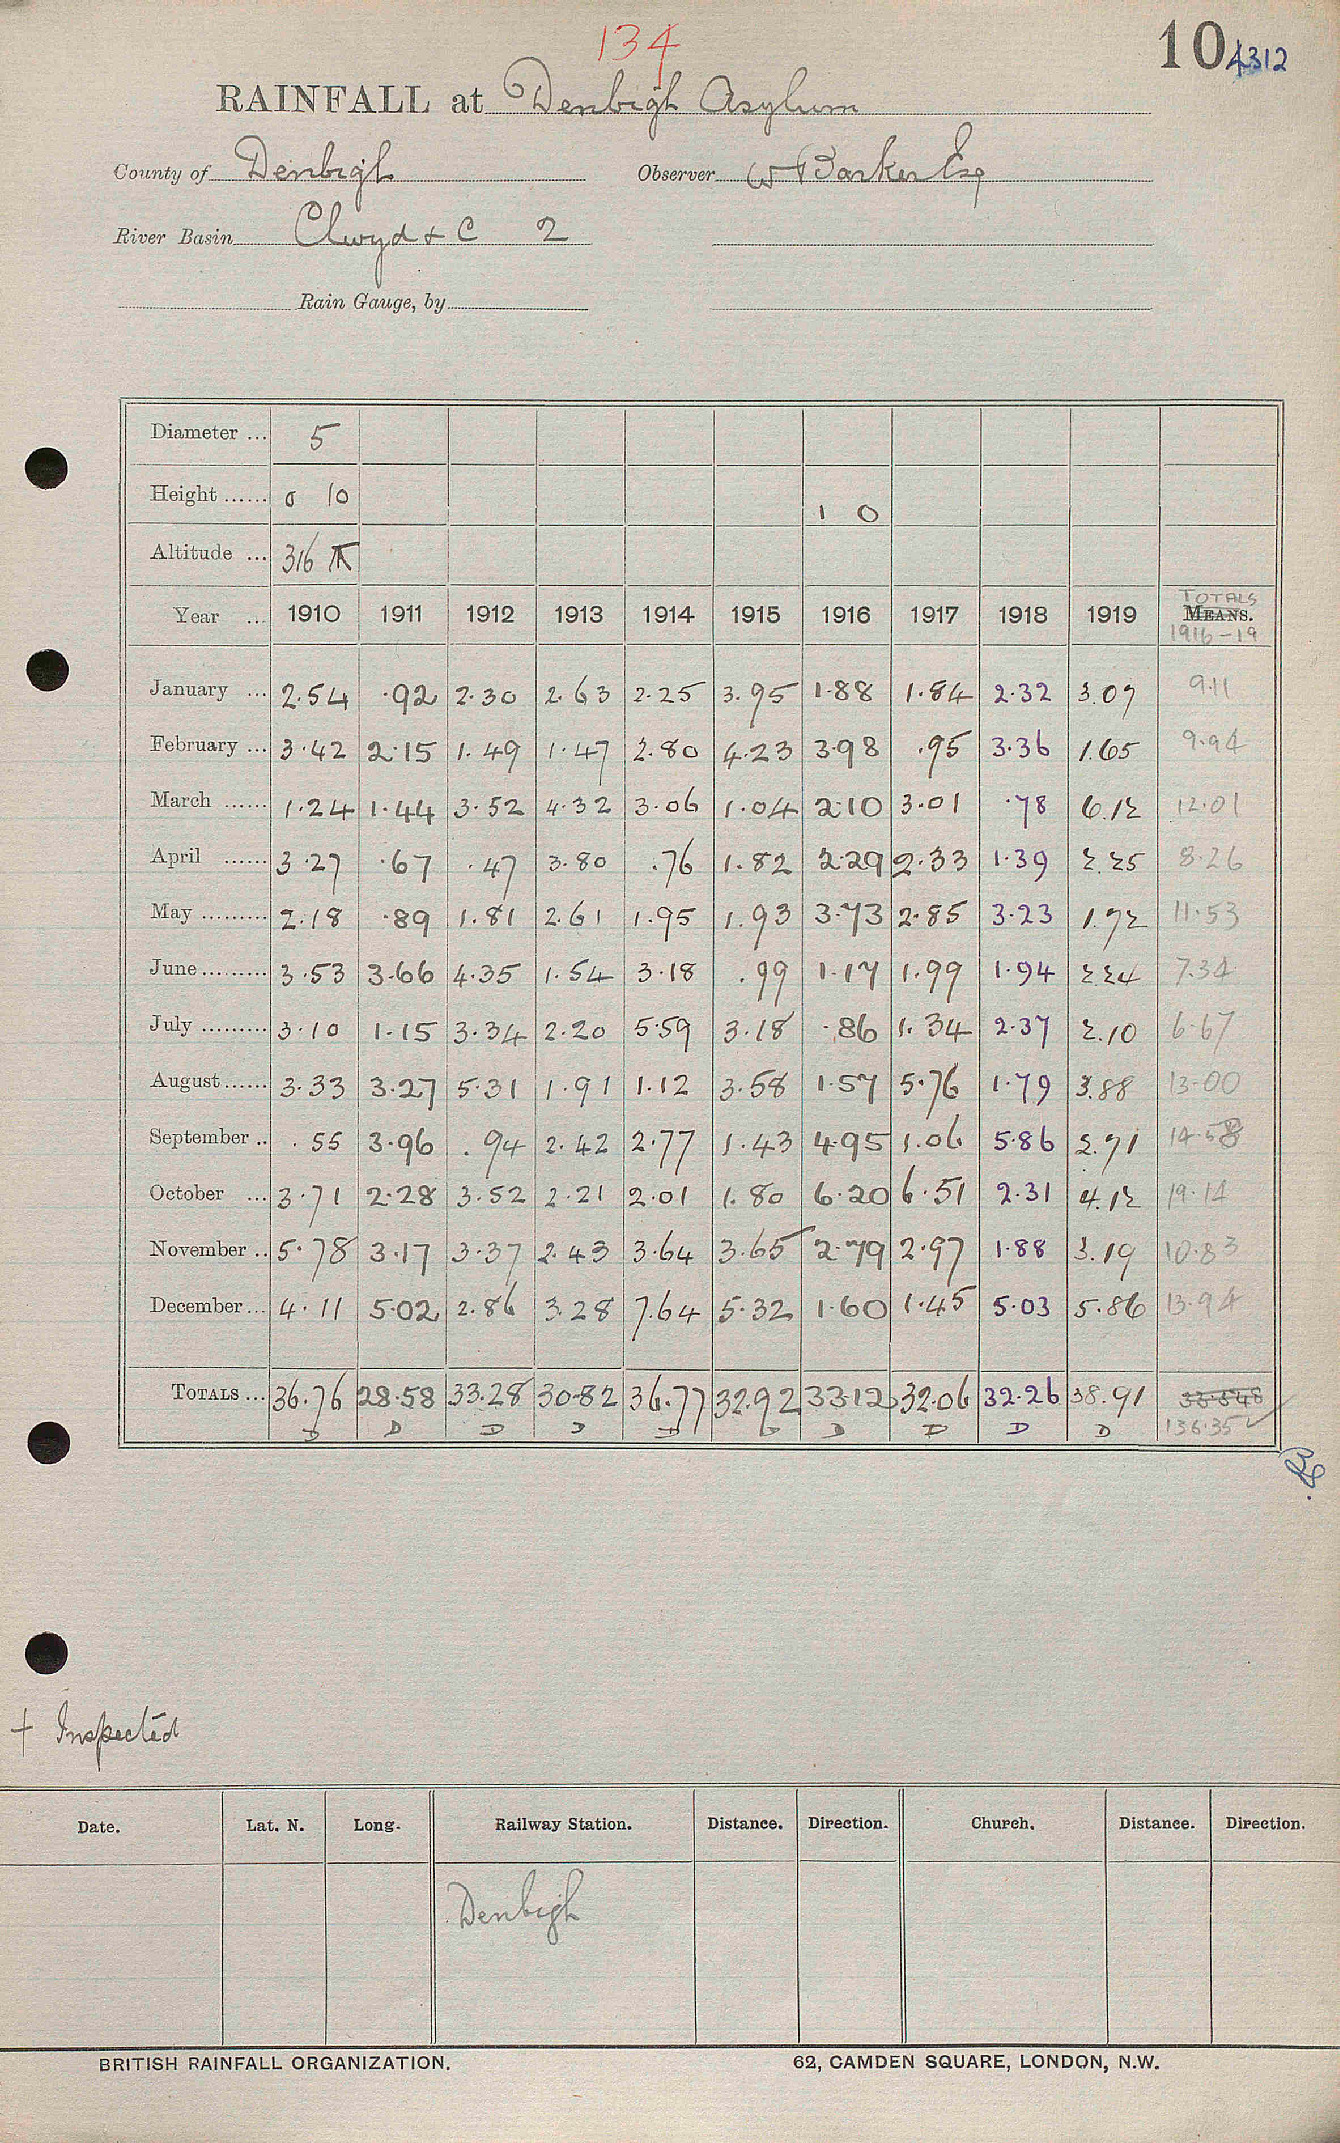 134
10 4312
RAINFALL at Denbigh Asylum
County of Denbigh Observer W Barker Esq
River Basin Clwyd & C 2
Rain Gauge, by
Diameter ... 5
Height ...... 0 10 1 0
Altitude ... 316
TOTALS
Year ... 1910 1911 1912 1913 1914 1915 1916 1917 1918 1919 MEANS.
1916-19
January ... 2.54 .92 2.30 2.63 2.25 3.95 1.88 1.84 2.32 3.07 9.11
February ... 3.42 2.15 1.49 1.47 2.80 4.23 3.98 .95 3.36 1.65 9.94
March ...... 1.24 1.44 3.52 4.32 3.06 1.04 2.10 3.01 .78 6.12 12.01
April ...... 3.27 .67 .47 3.80 .76 1.82 2.29 2.33 1.39 2.25 8.26
May ......... 2.18 .89 1.81 2.61 1.95 1.93 3.73 2.85 3.23 1.72 11.53
June ......... 3.53 3.66 4.35 1.54 3.18 .99 1.17 1.99 1.94 2.24 7.34
July ......... 3.10 1.15 3.34 2.20 5.59 3.18 .86 1.34 2.37 2.10 6.67
August ...... 3.33 3.27 5.31 1.91 1.12 3.58 1.57 5.76 1.79 3.88 13.00
September .. .55 3.96 .94 2.42 2.77 1.43 4.95 1.06 5.86 2.71 14.58
October ... 3.71 2.28 3.52 2.21 2.01 1.80 6.20 6.51 2.31 4.12 19.14
November .. 5.78 3.17 3.37 2.43 3.64 3.65 2.79 2.97 1.88 3.19 10.83
December ... 4.11 5.02 2.86 3.28 7.64 5.32 1.60 1.45 5.03 5.86 13.94
TOTALS ... 36.76 28.58 33.28 30.82 36.77 32.92 33.12 32.06 32.26 38.91
D D D D D D D D D D 136.35
+ Inspected
Date. Lat. N. Long. Railway Station. Distance. Direction. Church. Distance. Direction.
Denbigh
BRITISH RAINFALL ORGANIZATION. 62, CAMDEN SQUARE, LONDON, N.W.